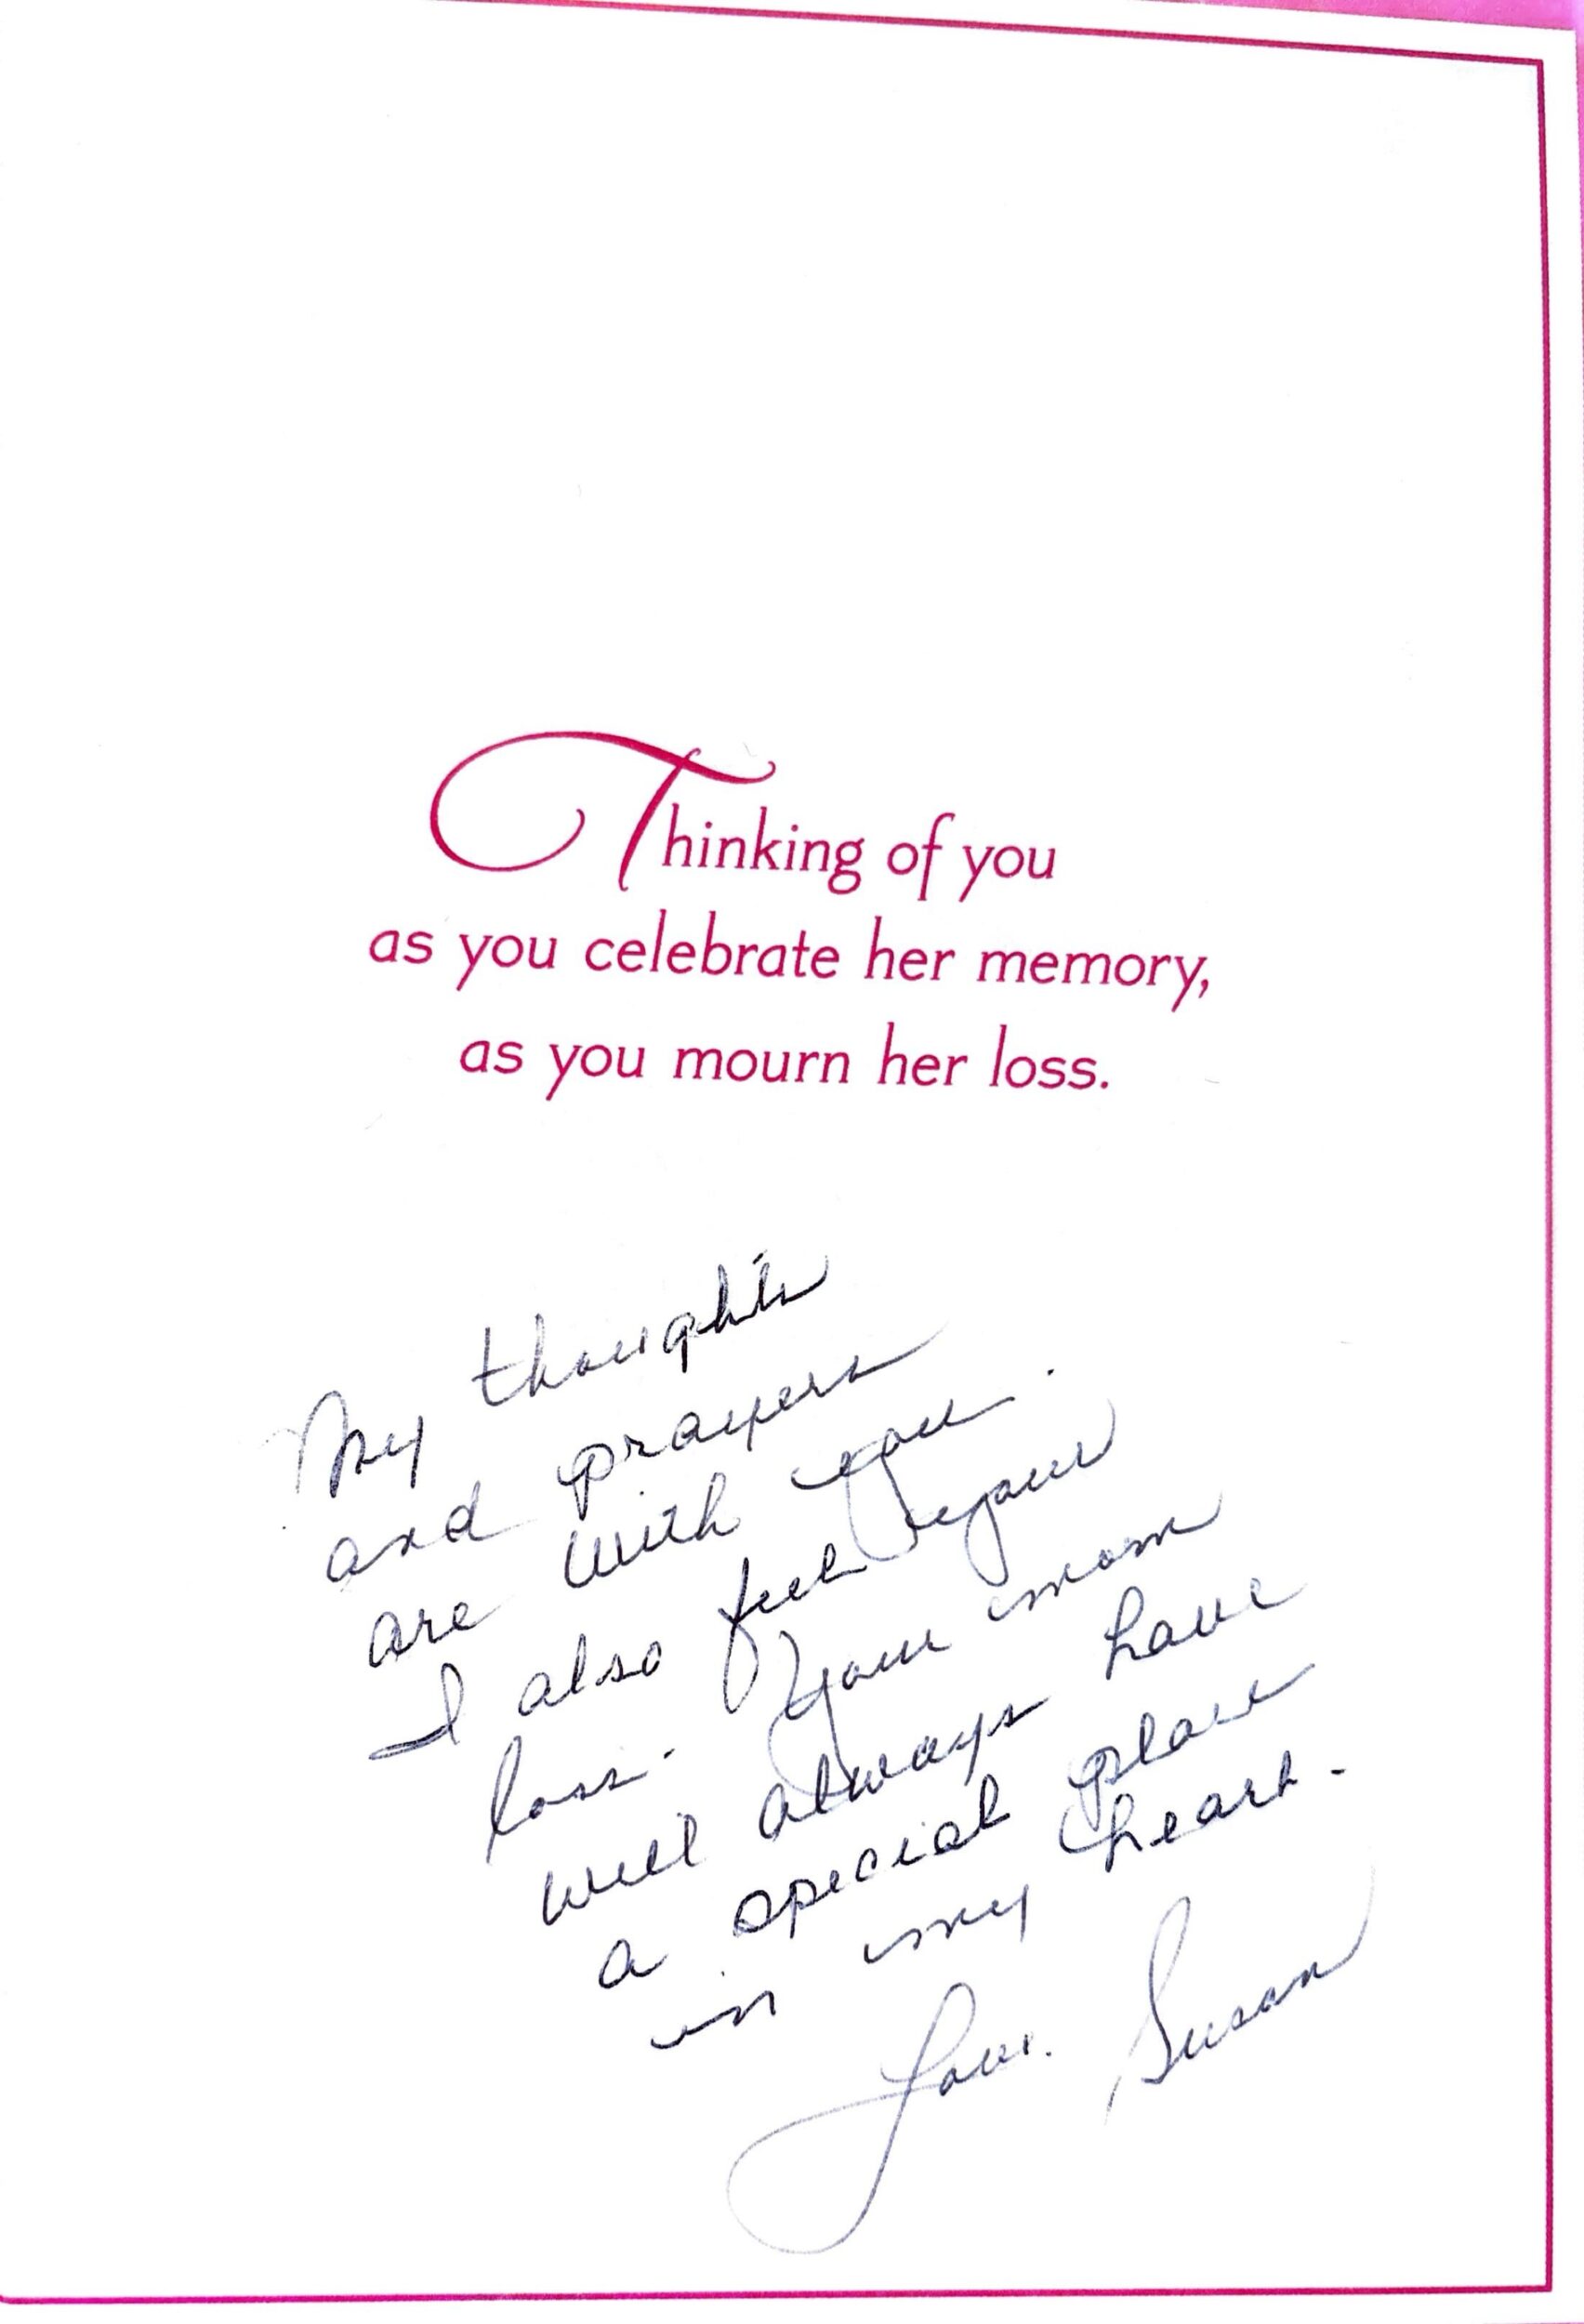 Thinking of you
as you celebrate her memory,
as you mourn her loss.
My thoughts
and prayers
are with you.
I also feel your
loss. Your mom
will always have
a special place
in my heart.
Love, Susan